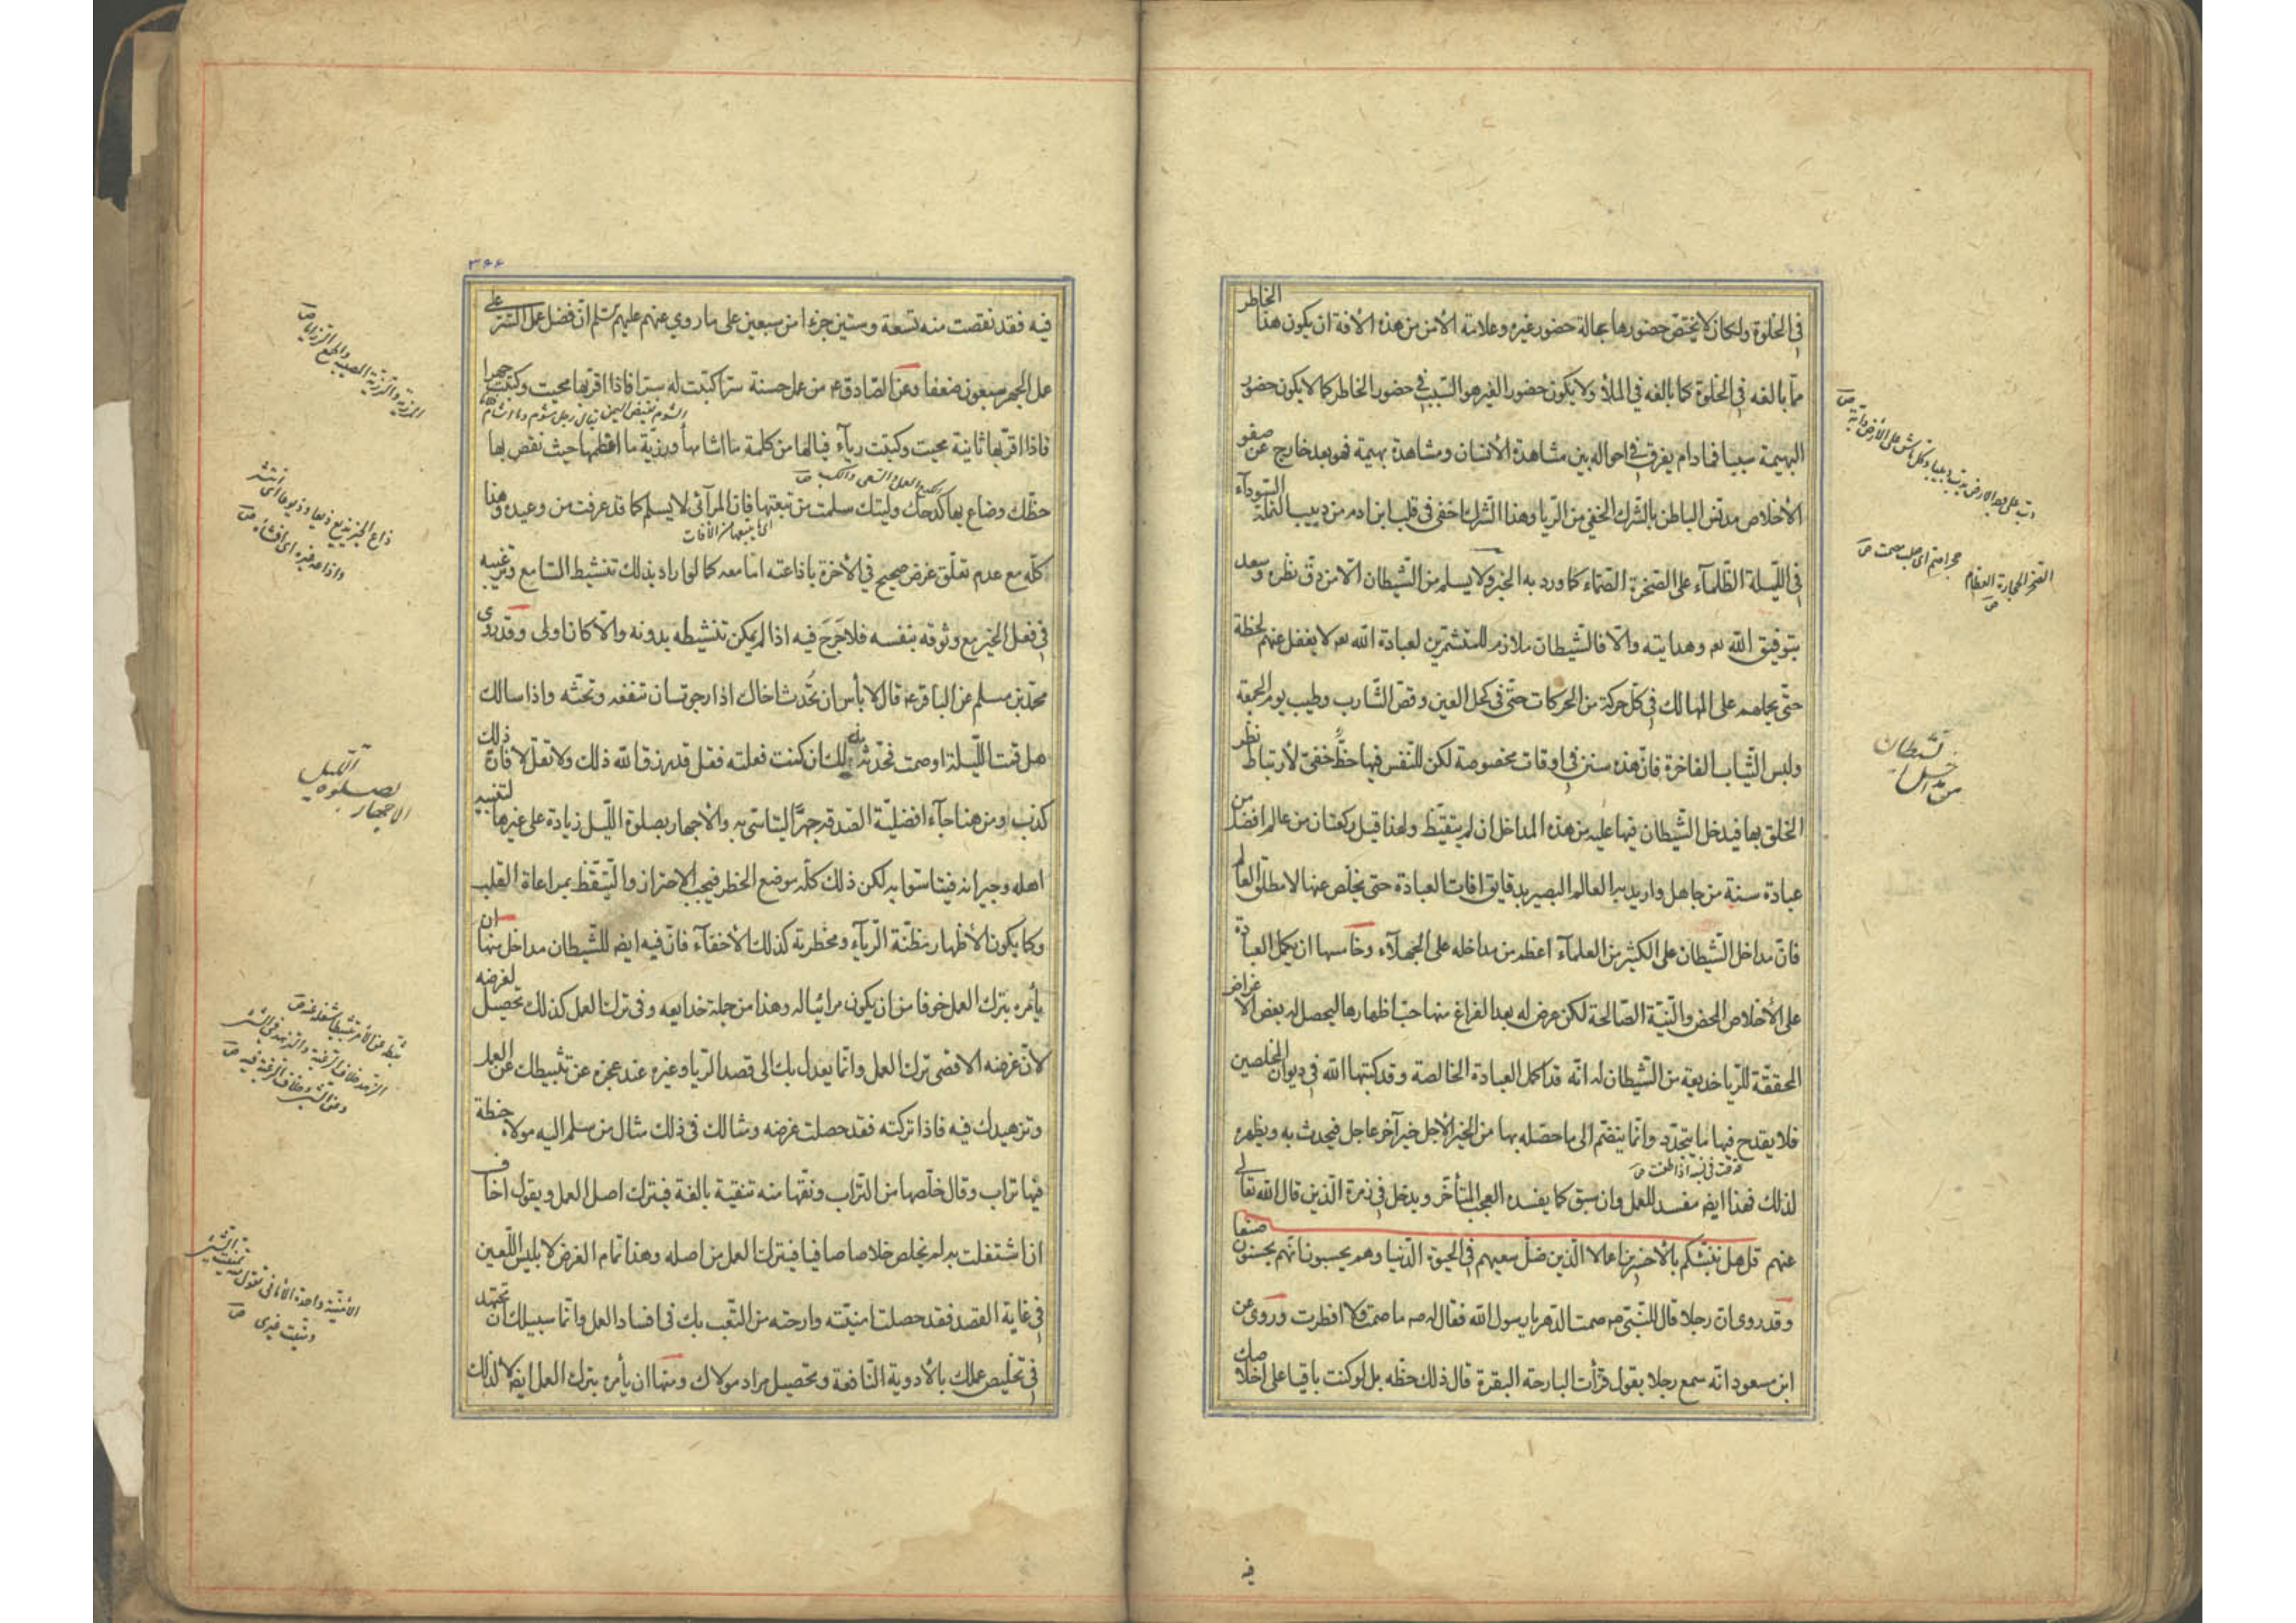 في الخلوة ولكان لا يختص حضورها بحالة حضور غيره وعلامة الأمن من هذه الآفة ان يكون هذا الخاطر
مما يألفه في الخلوة كما يألفه في الملأ ولا يكون حضور الغير هو السبب في حضور الخاطر كما لا يكون حضور
البهيمة سببا فما دام يفرق في احواله بين مشاهدة الأنسان ومشاهدة بهيمة فهو بعد خارج عن صفو
الأخلاص مدنس الباطن بالشرك الخفي من الريا وهذا الشرك اخفى في قلب ابن ادم من دبيب النملة السوداء
في الليلة الظلماء على الصخرة الصماء كما ورد به الخبر ولا يسلم من الشيطان الا من دق نظره وسعد
بتوفيق الله تعه وهدايته والا فالشيطان ملازم للمتشمرين لعبادة الله تعه لا يغفل عنهم لحظة
حتى يحملهم على المهالك في كل حركة من الحركات حتى في كحل العين وقص الشارب وطيب يوم الجمعة
ولبس الثياب الفاخرة فان هذه سنن في اوقات مخصوصة لكن للنفس فيها حظ خفي لارتباط نظر
الخلق بها فيدخل الشيطان فيها عليه من هذه المداخل ان لم يتيقظ ولهذا قيل ركعتان من عالم افضل من
عبادة سنة من جاهل واريد به العالم البصير بدقايق افات العبادة حتى يخلص عنها لا مطلق العالم
فان مداخل الشيطان على الكثير من العلماء اعظم من مداخله على الجهلاء وخامسها ان يكمل العبادة
على الأخلاص المحض والنية الصالحة لكن عرض له بعد الفراغ منها حب اظهارها ليحصل له بعض الاغراض
المحققة للريا خديعة من الشيطان له انه قد اكمل العبادة الخالصة وقد كتبها الله في ديوان المخلصين
فلا يقدح فيها ما يتجدد وانما ينضم الى ما حصله بها من الخير الآجل خير آخر عاجل فيحدث به ويظهره
لذلك فهذا ايضه مفسد للعمل وان سبق كما يفسده العجب المتأخر ويدخل في زمرة الذين قال الله تعالى
عنهم قل هل ننبئكم بالأخسرين اعمالا الذين ضل سعيهم في الحيوة الدنيا وهم يحسبون انهم يحسنون صنعا
وقد روى ان رجلا قال للنبي صه صمت الدهر يا رسول الله فقال له صه ما صمت ولا افطرت وروى عن
ابن مسعود انه سمع رجلا يقول قرأت البارحة البقرة قال ذلك حظه بل لو كنت باقيا على اخلاصك
فيه
الصخر الحجارة العظام
حجر اصم اى صلب مصمت ص
من مداخل الشيطان
٣٤٤
فيه فقد نقصت منه تسعة وستين جزءا من سبعين على ما روي عنهم عليهم السلم ان فضل عمل السر على
عمل الجهر سبعون ضعفا وعن الصادق عه من عمل حسنة سرا كتبت له سرا فاذا اقر بها محيت وكتبت جهرا
فاذا اقر بها ثانية محيت وكتبت رياء فيالها من كلمة ما اشأمها ورزية ما اعظمها حيث نقص بها
حظك وضاع بها كدحك وليتك سلمت من تبعتها فان المرآئى لا يسلم كما قد عرفت من وعيده وهذا
كله مع عدم تعلق غرض صحيح في الأخرة باذاعته اما معه كما لو اراد بذلك تنشيط السامع وترغيبه
في فعل الخير مع وثوقه بنفسه فلا حرج فيه اذا لم يمكن تنشيطه بدونه والا كان اولى وقد روى
محمد بن مسلم عن الباقر عه قال لا بأس ان تحدث اخاك اذا رجوت ان تنفعه وتحثه واذا سالك
هل قمت الليلة او صمت فحدثه بذلك ان كنت فعلته فقل قد رزق الله ذلك ولا تقل لا فان ذلك
كذب ومن هنا جآء افضلية الصدقة جهرا ليتاسى به والأجهار بصلوة الليل زيادة على غيرها لتنبيه
اهله وجيرانه فيتاسوا به لكن ذلك كله موضع الخطر فيجب الاحتراز والتيقظ بمراعاة القلب
وكما يكون الأظهار مظنة الرياء ومخطرته كذلك الأخفاء فان فيه ايضه للشيطان مداخل منها ان
يأمره بترك العمل خوفا من ان يكون مرائيا له وهذا من جملة خدايعه وفى ترك العمل كذلك تحصيل لغرضه
لأن غرضه الاقصى ترك العمل وانما يعدل بك الى قصد الريا وغيره عند عجزه عن تثبيطك عن العمل
وتزهيدك فيه فاذا تركته فقد حصلت غرضه ومثالك في ذلك مثال من سلم اليه مولاه حنطة
فيها تراب وقال خلصها من التراب ونقها منه تنقية بالغة فيترك اصل العمل ويقول اخاف
ان اشتغلت به لم يخلص خلاصا صافيا فيترك العمل من اصله وهذا تمام الغرض لابليس اللعين
في غاية القصد فقد حصلت امنيته وارحته من التعب بك في افساد العمل وانما سبيلك ان تجتهد
في تخليص عملك بالأدوية النافعة وتحصيل مراد مولاك ومنها ان يأمره بترك العمل ايضه لا لذلك
الاجهار بصلوة الليل